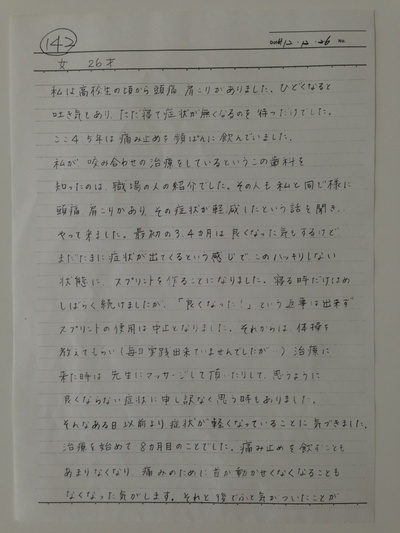 147
2008.12.12.26
女 26才
私は高校生の頃から頭痛 肩こりがありました。ひどくなると
吐き気もあり、ただ寝て症状が無くなるのを待つだけでした。
ここ4 5年は痛み止めを頻ぱんに飲んでいました。
私が 咬み合わせの治療をしているというこの歯科を
知ったのは、職場の人の紹介でした。その人も私と同じ様に
頭痛 肩こりがあり、その症状が軽減したという話を聞き、
やって来ました。最初の3、4カ月は良くなった気もするけど
まだたまに症状が出てくるという感じで、このハッキリしない
状態に、スプリントを作ることになりました。寝る時だけはめ
しばらく続けましたが、「良くなった!」という返事は出来ず
スプリントの使用は中止となりました。それからは、体操を
教えてもらい(毎日実践出来ていませんでしたが)治療に
来た時は先生にマッサージして頂いたりして、思うように
良くならない症状に申し訳なく思う時もありました。
そんなある日以前より症状が軽くなっていることに気づきました。
治療を始めて8カ月目のことでした。痛み止めを飲むことも
あまりなくなり、痛みのために首が動かせなくなることも
なくなった気がします。それと後でふと気がついたことが